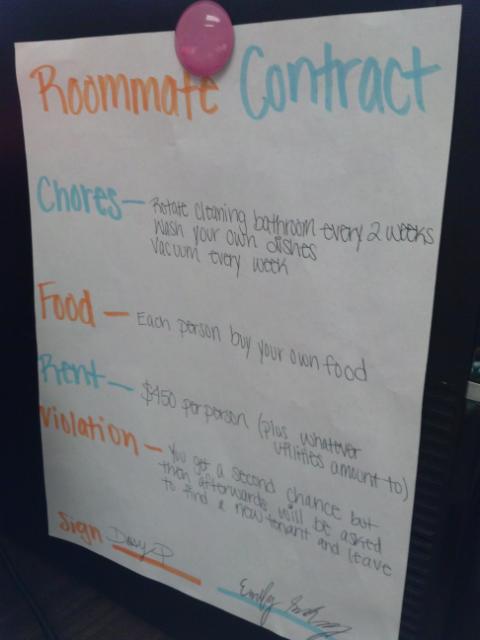 Roommate Contract
Chores— Rotate cleaning bathroom every 2 weeks
Wash your own dishes
Vacuum every week
Food — Each person buy your own food
Rent— $450 per person (plus whatever
utilities amount to)
Violation — You get a second chance but
then afterwards will be asked
to find a new tenant and leave
Sign Emily